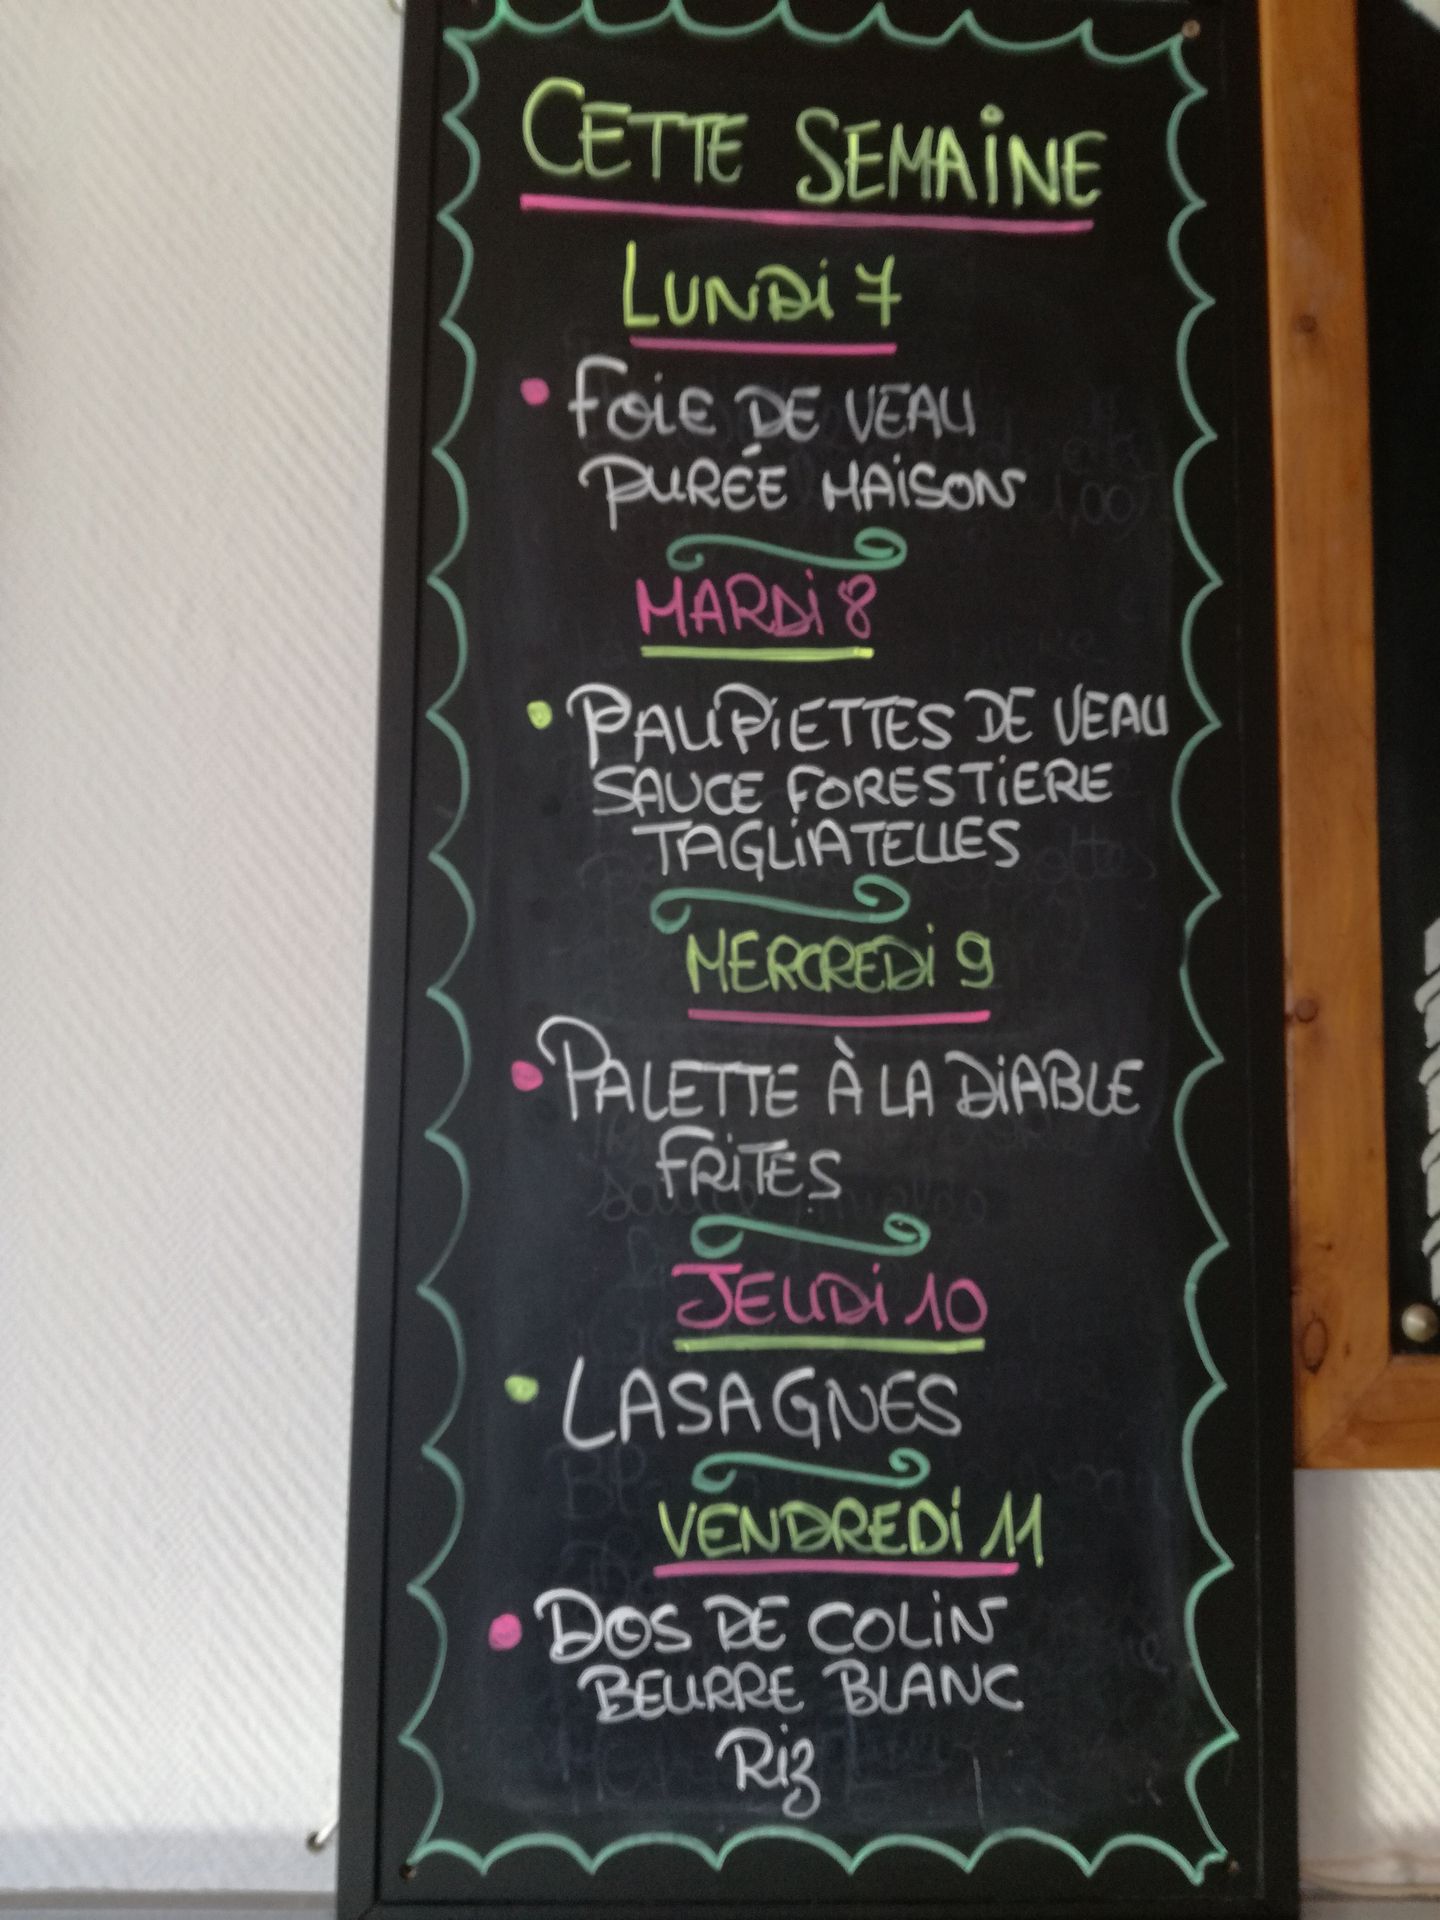 CETTE SEMAINE
LUNDI 7
• FOIE DE VEAU
PURÉE MAISON
MARDI 8
• PAUPIETTES DE VEAU
SAUCE FORESTIERE
TAGLIATELLES
MERCREDI 9
• PALETTE À LA DIABLE
FRITES
JEUDI 10
• LASAGNES
VENDREDI 11
• DOS DE COLIN
BEURRE BLANC
RIZ